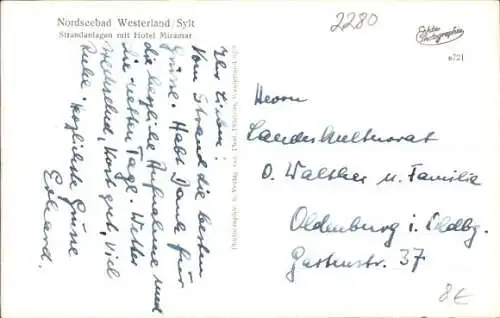 Nordseebad Westerland/Sylt
Strandanlagen mit Hotel Miramar
2280
Echte
Photographie
6721
Ihr Lieben!
Vom Strand die besten
Grüsse. Habt Dank für
die herzliche Aufnahme und
die netten Tage. Wetter
wechselnd, Kost gut, viel
Ruhe. Herzlichste Grüsse
Erhard.
Herrn
Landeskulturrat
O. Walther u. Familie
Oldenburg i. Oldbg.
Gartenstr. 37
8€